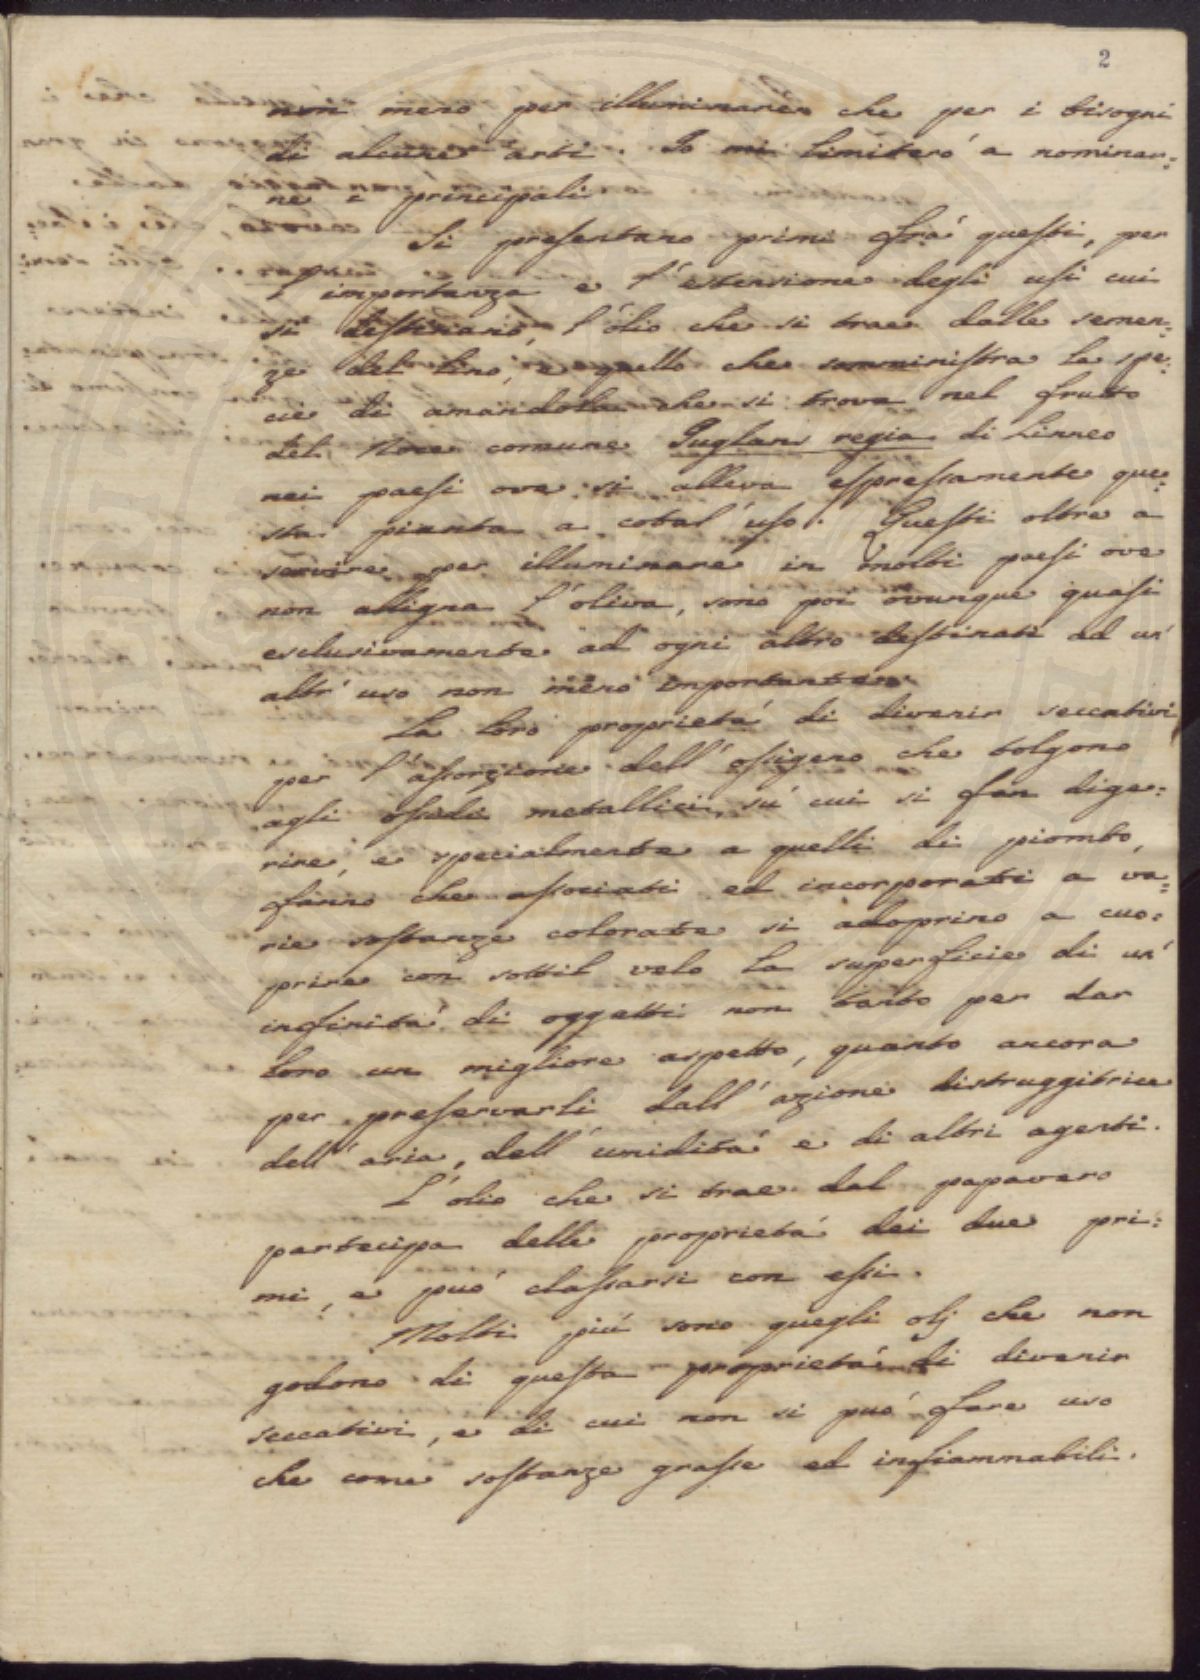 2
non meno per illuminare che per i bisogni
di alcune arti. Io mi limiterò a nominar=
ne i principali
Si presentano primi frà questi, per
l'importanza e l'estensione degli usi cui
si destinano, l'olio che si trae dalle semen=
ze del lino, e quello che somministra la spe=
cie di amandola che si trova nel frutto
del Noce comune Juglans regia di Linneo
nei paesi ove si alleva espressamente que=
sta pianta a cotal'uso. Questi oltre a
servire per illuminare in molti paesi ove
non alligna l'oliva, sono poi ovunque quasi
esclusivamente ad ogni altro destinati ad un'
altr'uso non meno importante
La loro proprietà di divenir seccativi
per l'assorzione dell'ossigeno che tolgono
agli ossidi metallici, sù cui si fan dige=
rire, e specialmente a quelli di piombo,
fanno che associati ed incorporati a va=
rie sostanze colorate si adoprino a cuo=
prire con sottil velo la superficie di un'
infinità di oggetti non tanto per dar
loro un migliore aspetto, quanto ancora
per preservarli dall'azione distruggitrice
dell'aria, dell'umidità e di altri agenti.
L'olio che si trae dal papavero
partecipa delle proprietà dei due pri=
mi, e può classarsi con essi.
Molti più sono quegli olj che non
godono di questa proprietà di divenir
seccativi, e di cui non si può fare uso
che come sostanze grasse ed infiammabili.